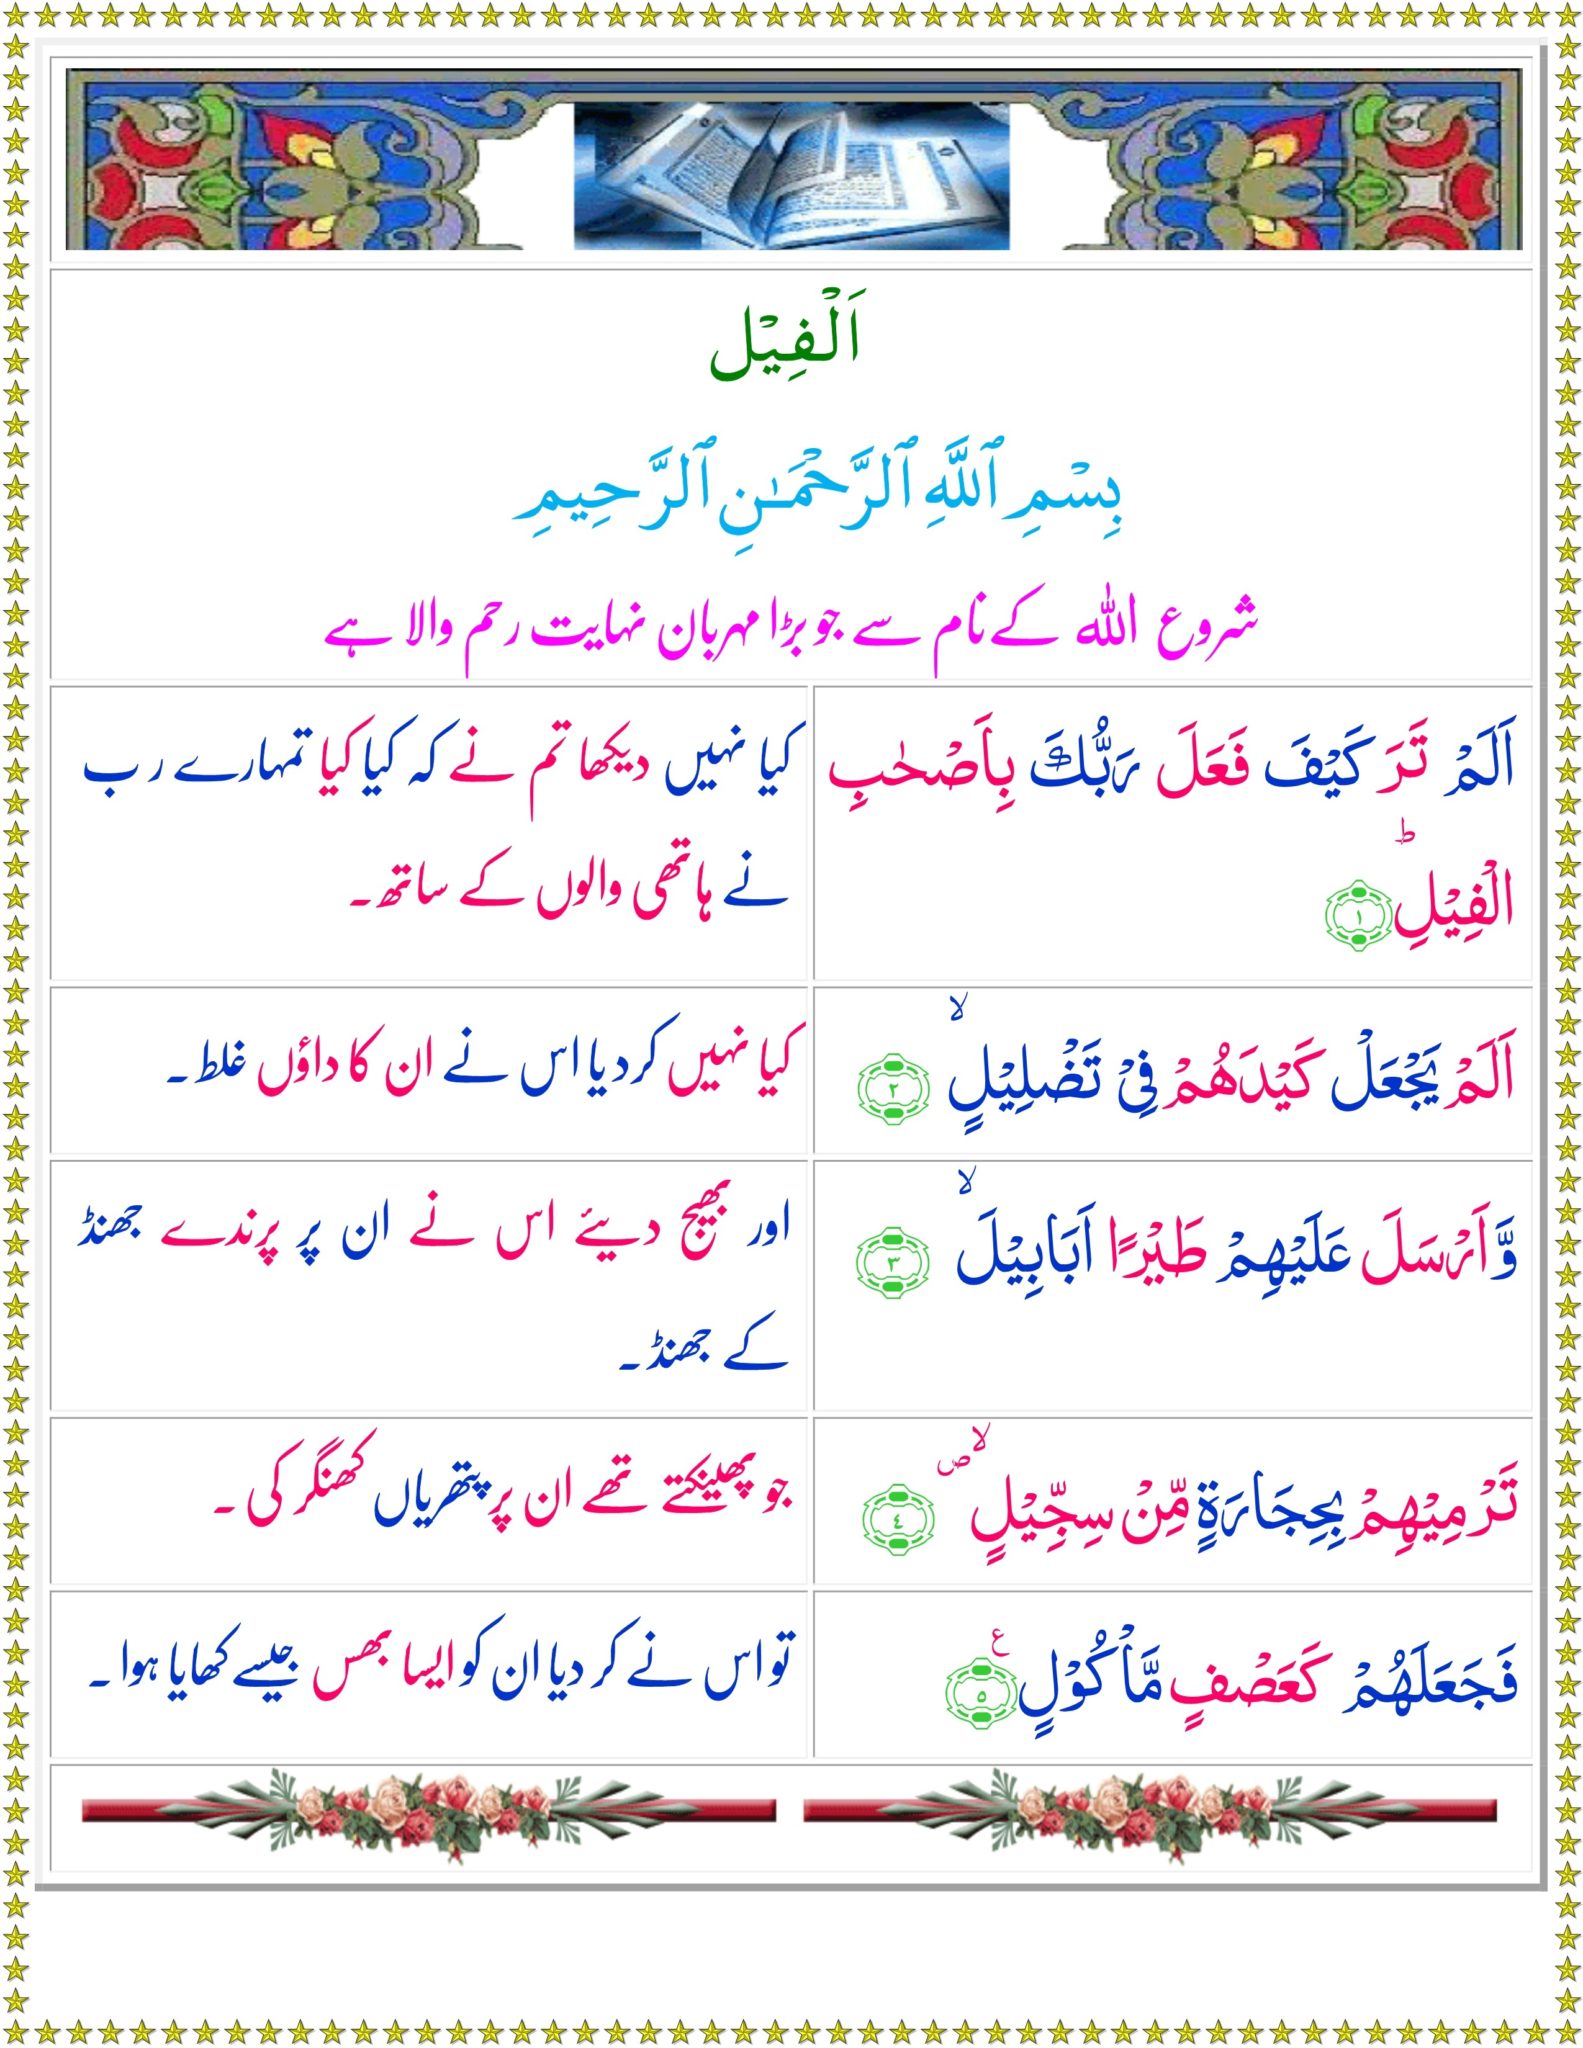 اَلْفِيْل
بِسْمِ ٱللَّهِ ٱلرَّحْمَـٰنِ ٱلرَّحِيمِ
شروع اللہ کے نام سے جو بڑا مہربان نہایت رحم والا ہے
اَلَمْ تَرَ كَيْفَ فَعَلَ رَبُّكَ بِاَصْحٰبِ
الْفِيْلِ ؕ ١
کیا نہیں دیکھا تم نے کہ کیا کیا تمہارے رب
نے ہاتھی والوں کے ساتھ۔
اَلَمْ يَجْعَلْ كَيْدَهُمْ فِيْ تَضْلِيْلٍ ۙ ٢
کیا نہیں کر دیا اس نے ان کا داؤں غلط۔
وَّاَرْسَلَ عَلَيْهِمْ طَيْرًا اَبَابِيْلَ ۙ ٣
اور بھیج دیئے اس نے ان پر پرندے جھنڈ
کے جھنڈ۔
تَرْمِيْهِمْ بِحِجَارَةٍ مِّنْ سِجِّيْلٍ ۙ ص ٤
جو پھینکتے تھے ان پر پتھریاں کھنگر کی۔
فَجَعَلَهُمْ كَعَصْفٍ مَّاْكُوْلٍ ع ٥
تو اس نے کر دیا ان کو ایسا بھس جیسے کھایا ہوا۔